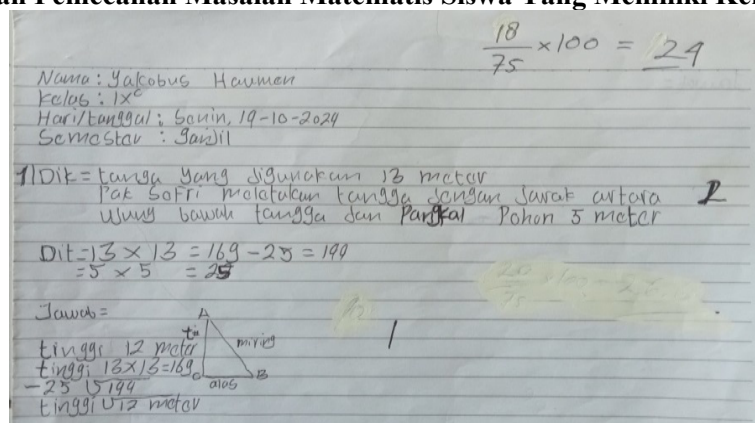 an Pemecahan Masalah Matematis Siswa Yang Memiliki Ke
18/75 x 100 = 24
Nama : Yakobus Haumen
Kelas : IXc
Hari/tanggal : Senin, 19-10-2024
Semester : Ganjil
1) Dik = tangga yang digunakan 13 meter
Pak Sofri meletakan tangga dengan Jarak antara 2
Ujung bawah tangga dan Pangkal Pohon 5 meter
Dit = 13 x 13 = 169 - 25 = 144
= 5 x 5 = 25
Jawab =
A
tinggi 12 meter
miring
1
tinggi 13x13=169
C B
- 25 √144
alas
tinggi √12 meter